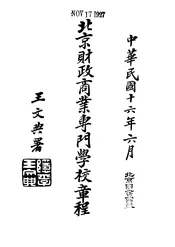 NOV 17 1927
中華民國十六年六月
北京財政商業專門學校章程
王文典署